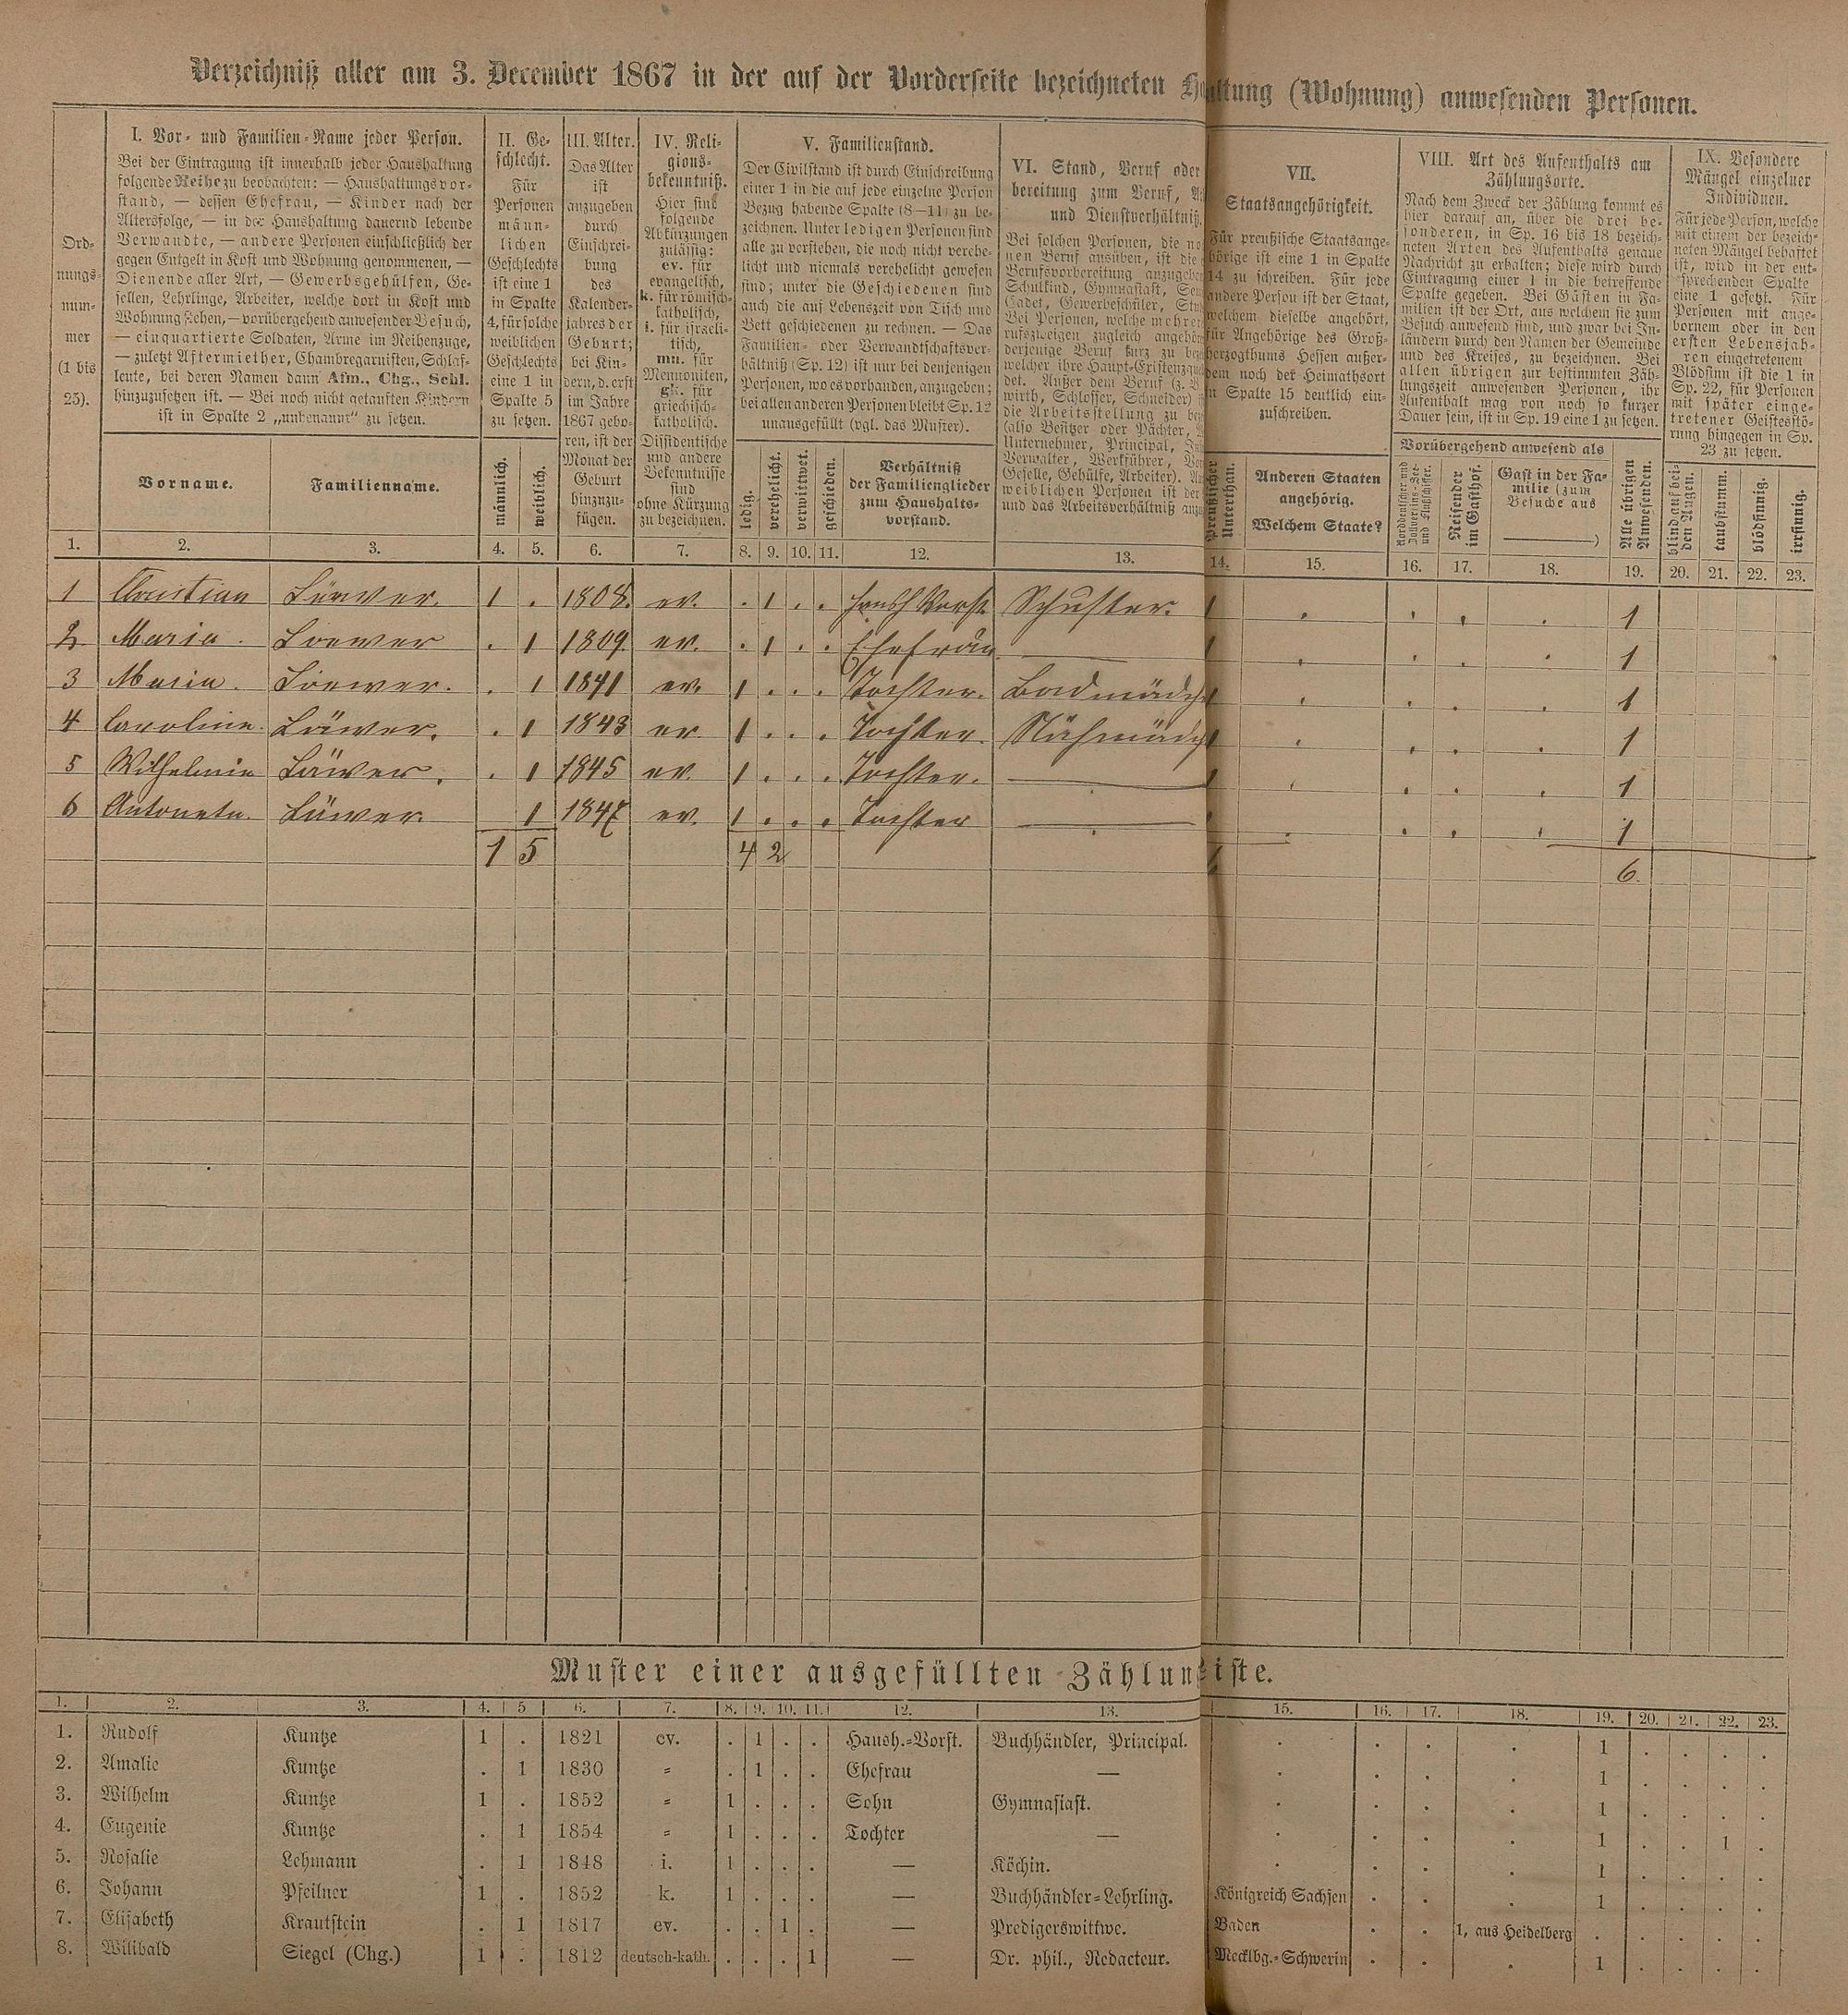 Verzeichniß aller am 3. December 1867 in der auf der Vorderseite bezeichneten altung (Wohnung) anwesenden Personen.
Ord-
nungs-
num-
mer
(1 bis
25).
I. Vor- und Familien-Name jeder Person.
Bei der Eintragung ist innerhalb jeder Haushaltung
folgende Reihe zu beobachten: — Haushaltungsvor-
stand, — dessen Ehefrau, — Kinder nach der
Altersfolge, — in der Haushaltung dauernd lebende
Verwandte, — andere Personen einschließlich der
gegen Entgelt in Kost und Wohnung genommenen, —
Dienende aller Art, — Gewerbsgehülfen, Ge-
sellen, Lehrlinge, Arbeiter, welche dort in Kost und
Wohnung stehen, — vorübergehend anwesender Besuch,
— einquartierte Soldaten, Arme im Reihenzuge,
— zuletzt Aftermiether, Chambregarnisten, Schlaf-
leute, bei deren Namen dann Afm., Chg., Schl.
hinzuzusetzen ist. — Bei noch nicht getauften Kindern
ist in Spalte 2 „unbenannt“ zu setzen.
Vorname.
Familienname.
II. Ge-
schlecht.
Für
Personen
männ-
lichen
Geschlechts
ist eine 1
in Spalte
4, für solche
weiblichen
Geschlechts
eine 1 in
Spalte 5
zu setzen.
männlich.
weiblich.
III. Alter.
Das Alter
ist
anzugeben
durch
Einschrei-
bung
des
Kalender-
jahres der
Geburt;
bei Kin-
dern, d. erst
im Jahre
1867 gebo-
ren, ist der
Monat der
Geburt
hinzuzu-
fügen.
IV. Reli-
gions-
bekenntniß.
Hier sind
folgende
Abkürzungen
zulässig:
ev. für
evangelisch,
k. für römisch-
katholisch,
i. für israeli-
tisch,
mn. für
Mennoniten,
gk. für
griechisch-
katholisch.
Dissidentische
und andere
Bekenntnisse
sind
ohne Kürzung
zu bezeichnen.
V. Familienstand.
Der Civilstand ist durch Einschreibung
einer 1 in die auf jede einzelne Person
Bezug habende Spalte (8—11) zu be-
zeichnen. Unter ledigen Personen sind
alle zu verstehen, die noch nicht verehe-
licht und niemals verehelicht gewesen
sind; unter die Geschiedenen sind
auch die auf Lebenszeit von Tisch und
Bett geschiedenen zu rechnen. — Das
Familien- oder Verwandtschaftsver-
hältniß (Sp. 12) ist nur bei denjenigen
Personen, wo es vorhanden, anzugeben;
bei allen anderen Personen bleibt Sp. 12
unausgefüllt (vgl. das Muster).
ledig.
verehelicht.
verwittwet.
geschieden.
Verhältniß
der Familienglieder
zum Haushalts-
vorstand.
VI. Stand, Beruf oder
bereitung zum Beruf,
und Dienstverhältniß.
Bei solchen Personen, die
nen Beruf ausüben, ist die
Berufsvorbereitung
Schulkind, Gymnasiast,
Cadet, Gewerbeschüler,
Bei Personen, welche
rufszweigen zugleich
derjenige Beruf kurz zu
welcher ihre Haupt-
det. Außer dem Beruf (z.
wirth, Schlosser, Schneider)
die Arbeitsstellung zu
(also Besitzer oder Pächter,
Unternehmer, Principal,
Verwalter, Werkführer,
Geselle, Gehülfe, Arbeiter).
weiblichen Personen ist der
und das Arbeitsverhältniß
VII.
Staatsangehörigkeit.
Für preußische Staatsange-
hörige ist eine 1 in Spalte
14 zu schreiben. Für jede
andere Person ist der Staat,
welchem dieselbe angehört,
für Angehörige des Groß-
herzogthums Hessen außer-
dem noch der Heimathsort
in Spalte 15 deutlich ein-
zuschreiben.
Preußischer
Unterthan.
Anderen Staaten
angehörig.
Welchem Staate?
VIII. Art des Aufenthalts am
Zählungsorte.
Nach dem Zweck der Zählung kommt es
hier darauf an, über die drei be-
sonderen, in Sp. 16 bis 18 bezeich-
neten Arten des Aufenthalts genaue
Nachricht zu erhalten; diese wird durch
Eintragung einer 1 in die betreffende
Spalte gegeben. Bei Gästen in Fa-
milien ist der Ort, aus welchem sie zum
Besuch anwesend sind, und zwar bei In-
ländern durch den Namen der Gemeinde
und des Kreises, zu bezeichnen. Bei
allen übrigen zur bestimmten Zäh-
lungszeit anwesenden Personen, ihr
Aufenthalt mag von noch so kurzer
Dauer sein, ist in Sp. 19 eine 1 zu setzen.
Vorübergehend anwesend als
Norddeutscher und
Zollvereins-See-
und Flußschiffer.
Reisender
im Gasthof.
Gast in der Fa-
milie (zum
Besuche aus
)
Alle übrigen
Anwesenden.
IX. Besondere
Mängel einzelner
Individuen.
Für jede Person, welche
mit einem der bezeich-
neten Mängel behaftet
ist, wird in der ent-
sprechenden Spalte
eine 1 gesetzt. Für
Personen mit ange-
bornem oder in den
ersten Lebensjah-
ren eingetretenem
Blödsinn ist die 1 in
Sp. 22, für Personen
mit später einge-
tretener Geistesstö-
rung hingegen in Sp.
23 zu setzen.
blind auf bei-
den Augen.
taubstumm.
blödsinnig.
irrsinnig.
1. 2. 3. 4. 5. 6. 7. 8. 9. 10. 11. 12. 13. 14. 15. 16. 17. 18. 19. 20. 21. 22. 23.
1 Christian Löwer. 1 . 1808. ev. . 1 . . Haush Vorst. Schuster. 1 . . . . 1
2. Maria. Loewer . 1 1809. ev. . 1 . . Ehefrau — 1 . . . . 1
3 Maria. Loewer. . 1 1841 ev. 1 . . . Tochter. 1 . . . . 1
4 Caroline. Löwer. . 1 1843 ev. 1 . . . Tochter. 1 . . . . 1
5 Wilhelmin Löwer. . 1 1845 ev. 1 . . . Tochter. — 1 . . . . 1
6 Antoneta. Löwer 1 1847 ev. 1 . . . Tochter — . . . . 1
1 5 4 2 6.
Muster einer ausgefüllten Zählun iste.
1. 2. 3. 4. 5 6. 7. 8. 9. 10. 11. 12. 13. 15. 16. 17. 18. 19. 20. 21. 22. 23.
1. Rudolf Kuntze 1 . 1821 ev. . 1 . . Haush.-Vorst. Buchhändler, Principal. . . . . 1 . . . .
2. Amalie Kuntze . 1 1830 = . 1 . . Ehefrau — . . . . 1 . . . .
3. Wilhelm Kuntze 1 . 1852 = 1 . . . Sohn Gymnasiast. . . . . 1 . . . .
4. Eugenie Kuntze . 1 1854 = 1 . . . Tochter — . . . . 1 . . 1 .
5. Rosalie Lehmann . 1 1848 i. 1 . . . — Köchin. . . . . 1 . . . .
6. Johann Pfeilner 1 . 1852 k. 1 . . . — Buchhändler-Lehrling. Königreich Sachsen . . . 1 . . . .
7. Elisabeth Krautstein . 1 1817 ev. . . 1 . — Predigerswittwe. Baden . . 1, aus Heidelberg . . . . .
8. Wilibald Siegel (Chg.) 1 . 1812 deutsch-kath. . . . 1 — Dr. phil., Redacteur. Mecklbg.-Schwerin . . . 1 . . . .